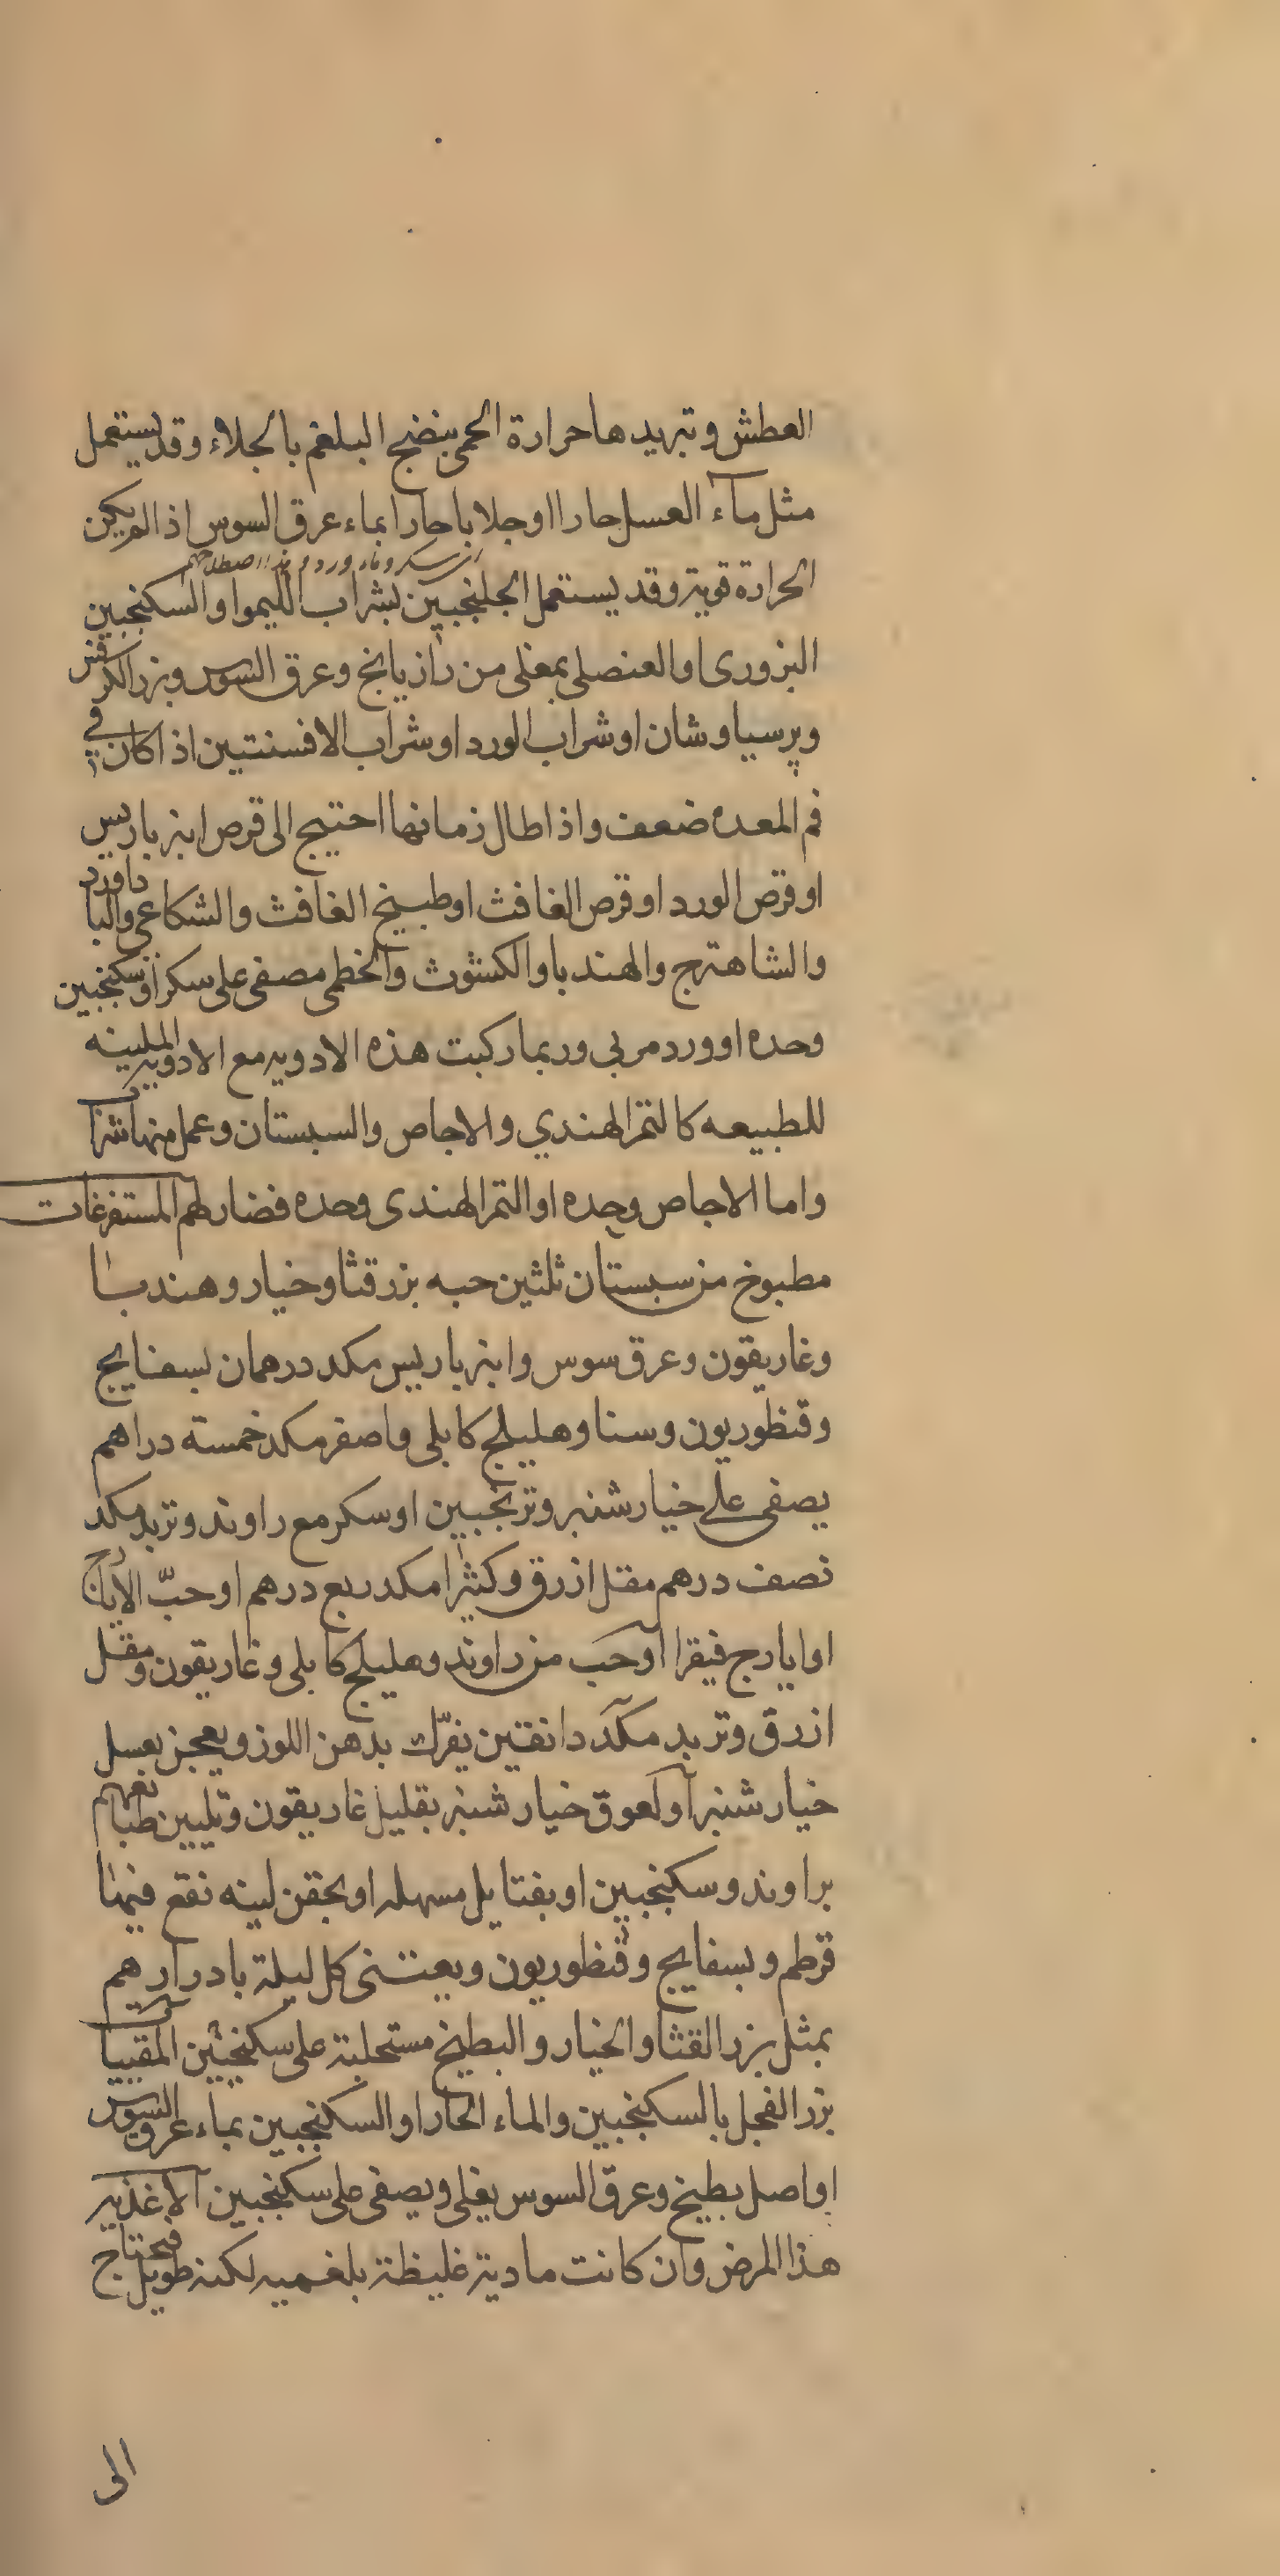 العطش وتبريدها حرارة الحمى بنضج البلغم بالجلاء وقد يستعمل
مثل مآء العسل حارا اوجلابا حارا بماء عرق السوس اذ الم يكن
سكر وماء ورد
الحرارة قوية وقد يستعمل الجلنجبين بشراب الليموا والسكنجبين
البزورى او العنصلى بمغلى من رازيانج وعرق السوس وبزر الكرفس
وپرسياوشان اوشراب الورد اوشراب الافسنتين اذ اكان في
فم المعده ضعف واذ اطال زمانها احتيج الى قرص انبرباريس
اوقرص الورد اوقرص الغافث اوطبيخ الغافث والشكاعى والباداورد
والشاهترج والهندبا والكشوث والخطمى مصفى على سكر اوسكنجبين
وحده اوورد مربى وربما ركبت هذه الادويه مع الادويه الملينه
للطبيعه كالتمر الهندي والاجاص والسبستان وعمل منها شرابا
واما الاجاص وحده او التمر الهندى وحده فضار لهم المستفرغات
مطبوخ من سبستان ثلثين حبه بزر قثا وخيار وهندبا
وغاريقون وعرق سوس وانبرباريس مكد درهمان بسفايج
وقنطوريون وسنا وهليلج كابلى واصفر مكد خمسته دراهم
يصفى على خيارشنبر وترنجبين اوسكر مع راوند وتربد مكد
نصف درهم مقل ازرق وكثيرا مكد ربع درهم اوحبّ الايارج
اوايارج فيقرا آوحب من راوند وهليلج كابلى وغاريقون ومقل
ازرق وتربد مكد دانقين يفرّك بدهن اللوز ويعجن بعسل
خيارشنبر آولعوق خيارشنبر بقليل غاريقون وتليين طبائعهم
براوند وسكنجبين اوبفتايل مسهله اوبحقن لينه نقع فيها
قرطم وبسفايج وقنطوريون ويعتنى كل ليلة بادرارهم
بمثل بزر القثا والخيار والبطيخ مستحلبة على سكنجبين المقييات
بزر الفجل بالسكنجبين والماء الحار او السكنجبين بماء عرق السوس
اواصل بطيخ وعرق السوس يغلى ويصفى على سكنجبين الاغذيه
هذا المرض وان كانت مادية غليظة بلغميه لكنه طويل فيحتاج
الى